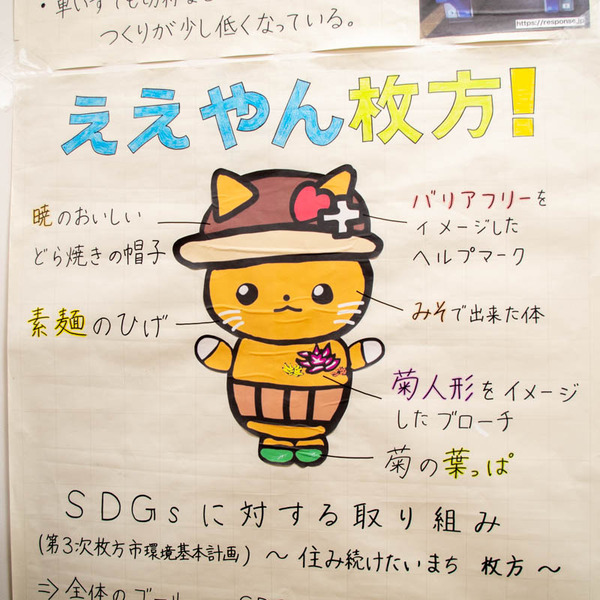 ・車いすでも
つくりが少し低くなっている。
https://response.jp
ええやん枚方!
暁のおいしい
どら焼きの帽子
バリアフリーを
イメージした
ヘルプマーク
素麺のひげ
みそで出来た体
菊人形をイメージ
したブローチ
菊の葉っぱ
SDGsに対する取り組み
(第3次枚方市環境基本計画)〜住み続けたいまち 枚方〜
⇒全体の